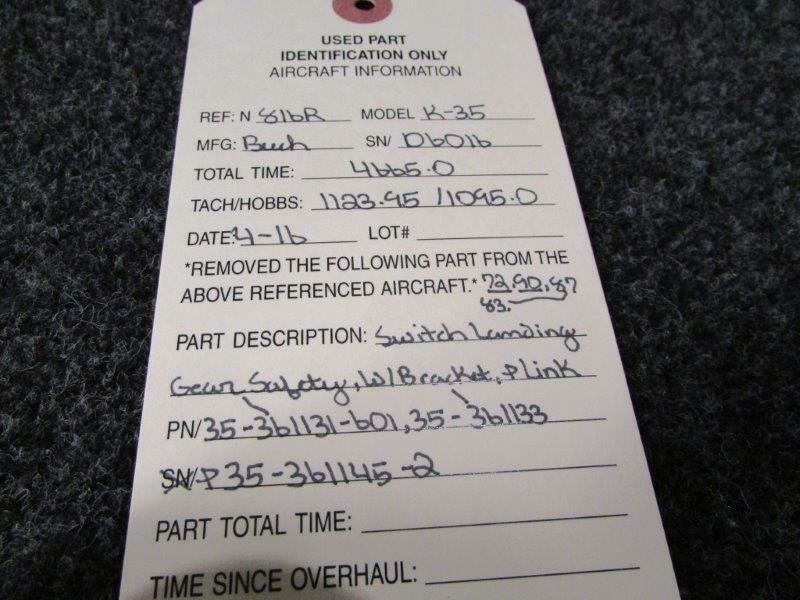 USED PART
IDENTIFICATION ONLY
AIRCRAFT INFORMATION
REF: N 816R MODEL K-35
MFG: Beech SN/ D6016
TOTAL TIME: 4665.0
TACH/HOBBS: 1123.95 / 1095.0
DATE: 4-16 LOT#
*REMOVED THE FOLLOWING PART FROM THE
ABOVE REFERENCED AIRCRAFT.* 72.90, 87
83.
PART DESCRIPTION: Switch Landing
Gear Safety, W/ Bracket, & Link
PN/ 35-361131-601, 35-361133
SN/ & 35-361145-2
PART TOTAL TIME:
TIME SINCE OVERHAUL: